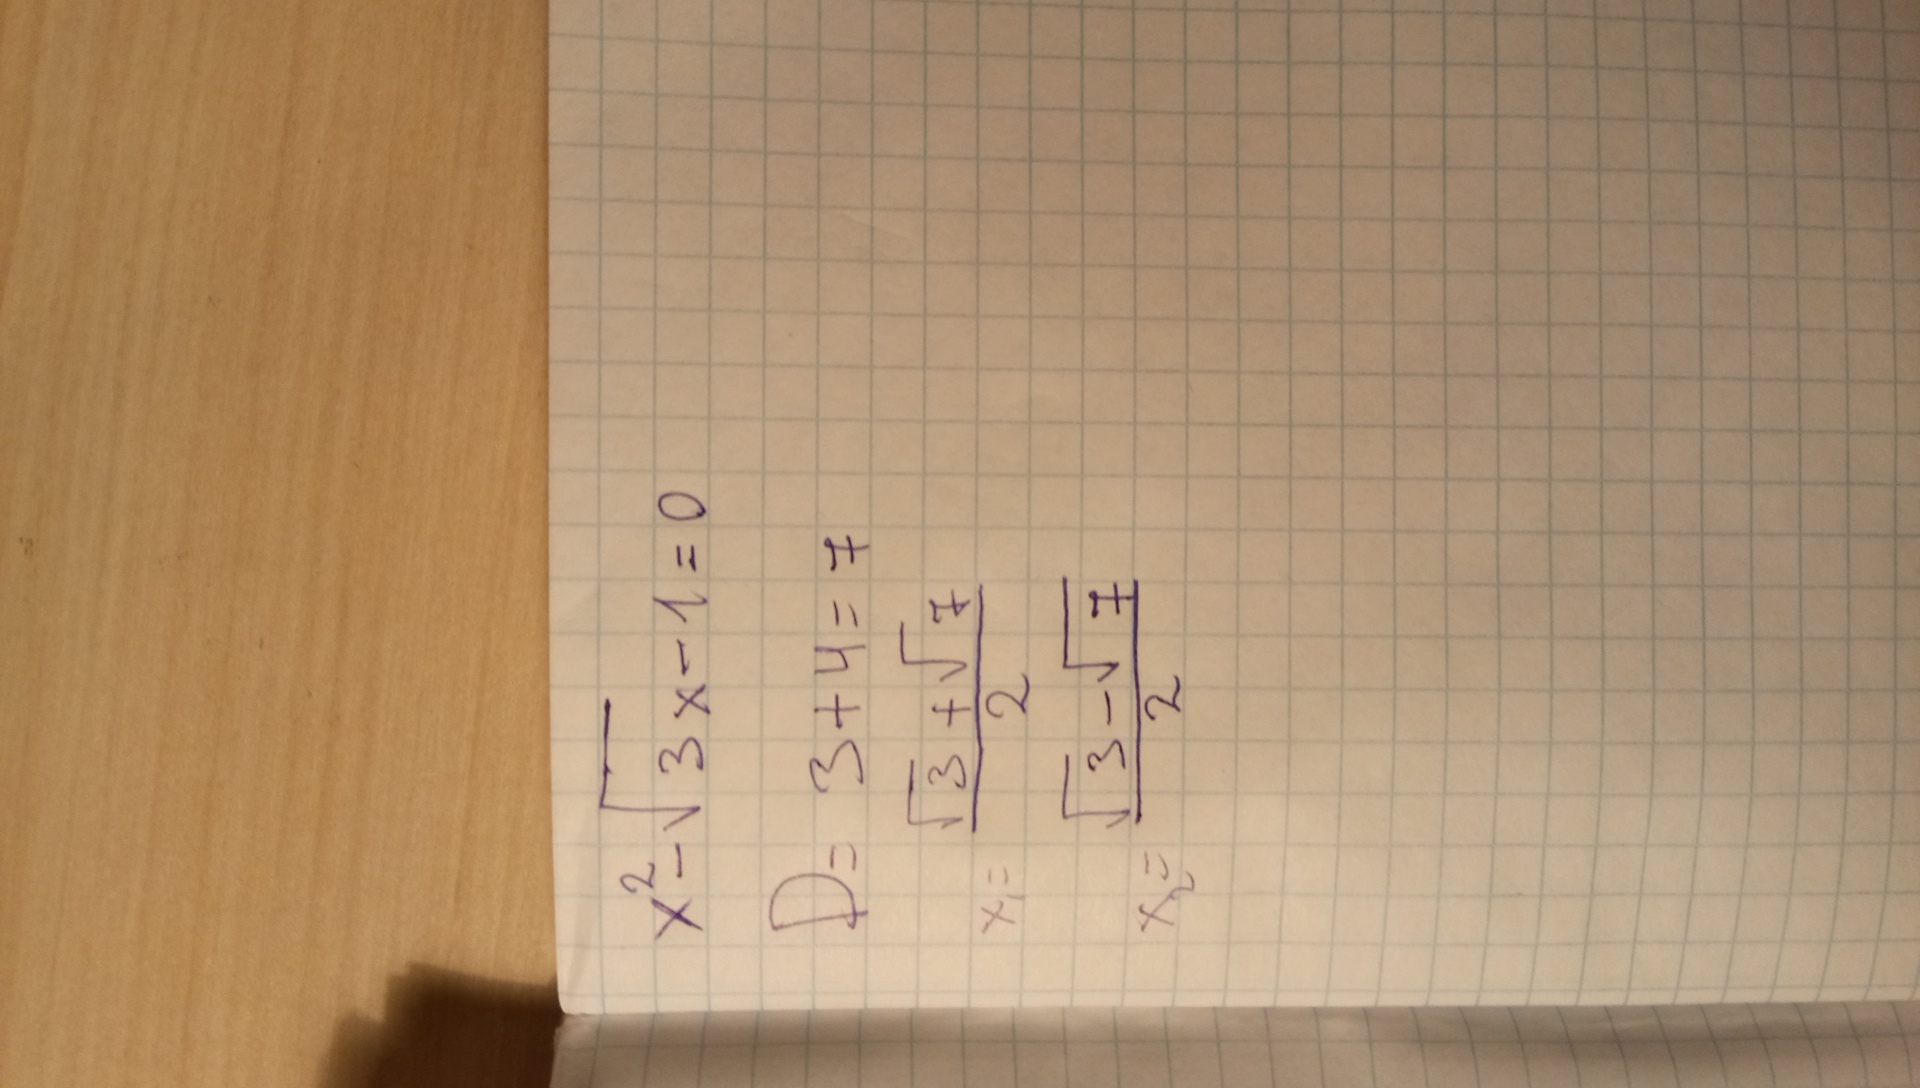 x²-√3x-1=0
D=3+4=7
x₁=(√3+√7)/2
x₂=(√3-√7)/2